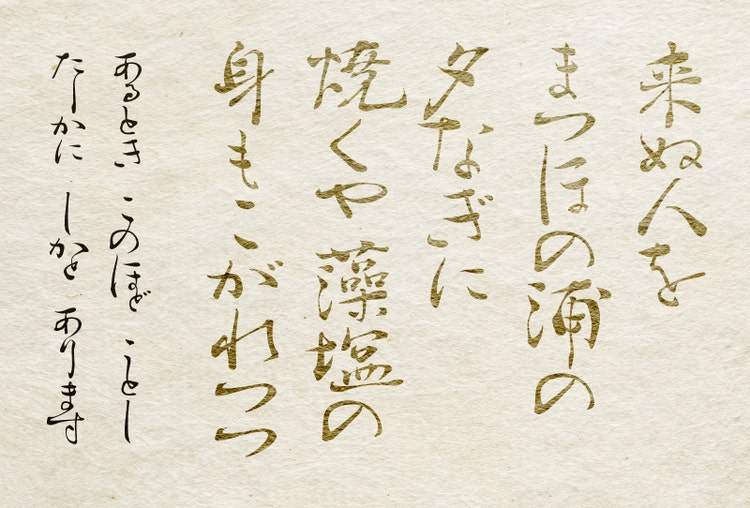 来ぬ人を
まつほの浦の
夕なぎに
焼くや藻塩の
身もこがれつつ
あるとき このほど ことし
たしかに しかと あります